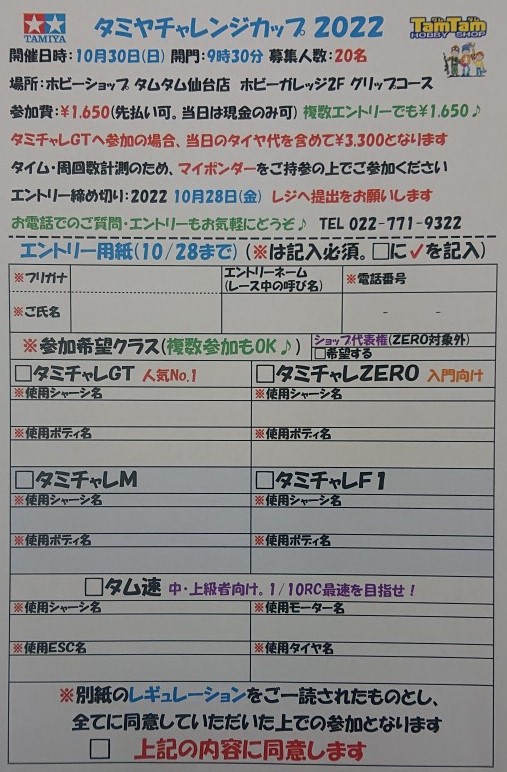 TAMIYA
タミヤチャレンジカップ 2022
TamTam
HOBBY SHOP
開催日時:10月30日(日) 開門:9時30分 募集人数:20名
場所:ホビーショップ タムタム仙台店 ホビーガレッジ2F グリップコース
参加費:¥1.650(先払い可。当日は現金のみ可) 複数エントリーでも¥1.650♪
タミチャレGTへ参加の場合、当日のタイヤ代を含めて¥3,300となります
タイム・周回数計測のため、マイポンダーをご持参の上でご参加ください
エントリー締め切り:2022 10月28日(金) レジへ提出をお願いします
お電話でのご質問・エントリーもお気軽にどうぞ♪ TEL 022-771-9322
エントリー用紙(10/28まで) (※は記入必須。□に✓を記入)
※フリガナ
エントリーネーム
(レース中の呼び名)
※電話番号
※ご氏名
- -
※参加希望クラス(複数参加もOK♪)
ショップ代表権(ZERO対象外)
□希望する
□タミチャレGT 人気No.1
□タミチャレZERO 入門向け
※使用シャーシ名
※使用シャーシ名
※使用ボディ名
※使用ボディ名
□タミチャレM
□タミチャレF1
※使用シャーシ名
※使用シャーシ名
※使用ボディ名
※使用ボディ名
□タム速 中・上級者向け。1/10RC最速を目指せ!
※使用シャーシ名
※使用モーター名
※使用ESC名
※使用タイヤ名
※別紙のレギュレーションをご一読されたものとし、
全てに同意していただいた上での参加となります
□ 上記の内容に同意します